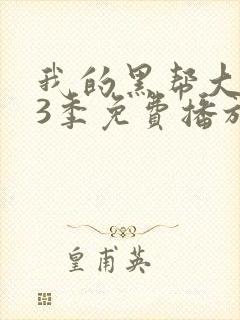 我的黑帮大
3季免費播放
皇甫英